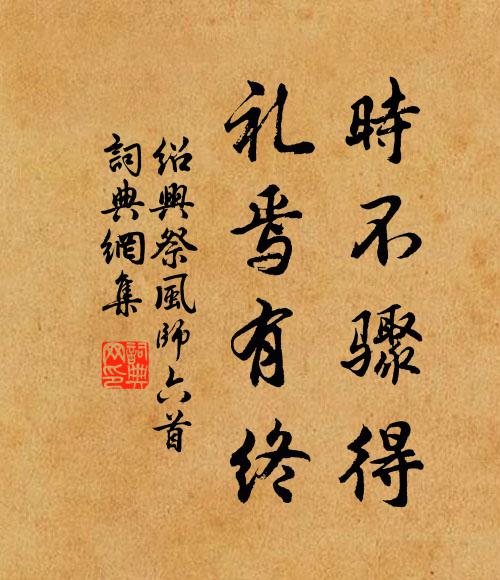 時不驟得
礼焉有终
绍興祭風師六首
詞典網集
詞典
网印